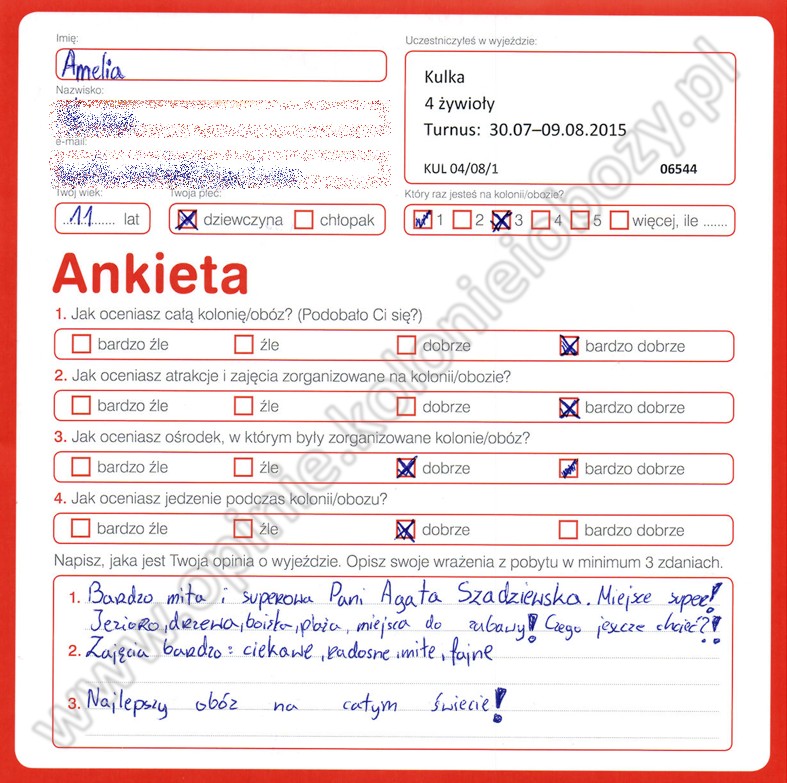 Imię:
Uczestniczyłeś w wyjeździe:
Amelia
Kulka
4 żywioły
Turnus: 30.07–09.08.2015
KUL 04/08/1 06544
Nazwisko:
e-mail:
Twój wiek: Twoja płeć: Który raz jesteś na kolonii/obozie?
11 lat dziewczyna chłopak 1 2 3 4 5 więcej, ile .......
Ankieta
1. Jak oceniasz całą kolonię/obóz? (Podobało Ci się?)
bardzo źle źle dobrze bardzo dobrze
2. Jak oceniasz atrakcje i zajęcia zorganizowane na kolonii/obozie?
bardzo źle źle dobrze bardzo dobrze
3. Jak oceniasz ośrodek, w którym były zorganizowane kolonie/obóz?
bardzo źle źle dobrze bardzo dobrze
4. Jak oceniasz jedzenie podczas kolonii/obozu?
bardzo źle źle dobrze bardzo dobrze
Napisz, jaka jest Twoja opinia o wyjeździe. Opisz swoje wrażenia z pobytu w minimum 3 zdaniach.
1. Bardzo miła i superowa Pani Agata Szadziewska. Miejsce super!
Jezioro, drzewa, boisko, plaża, miejsca do zabawy! Czego jeszcze chcieć?!
2. Zajęcia bardzo: ciekawe, radosne, miłe, fajne
3. Najlepszy obóz na całym świecie!
www.opinie.kolonieiobozy.pl